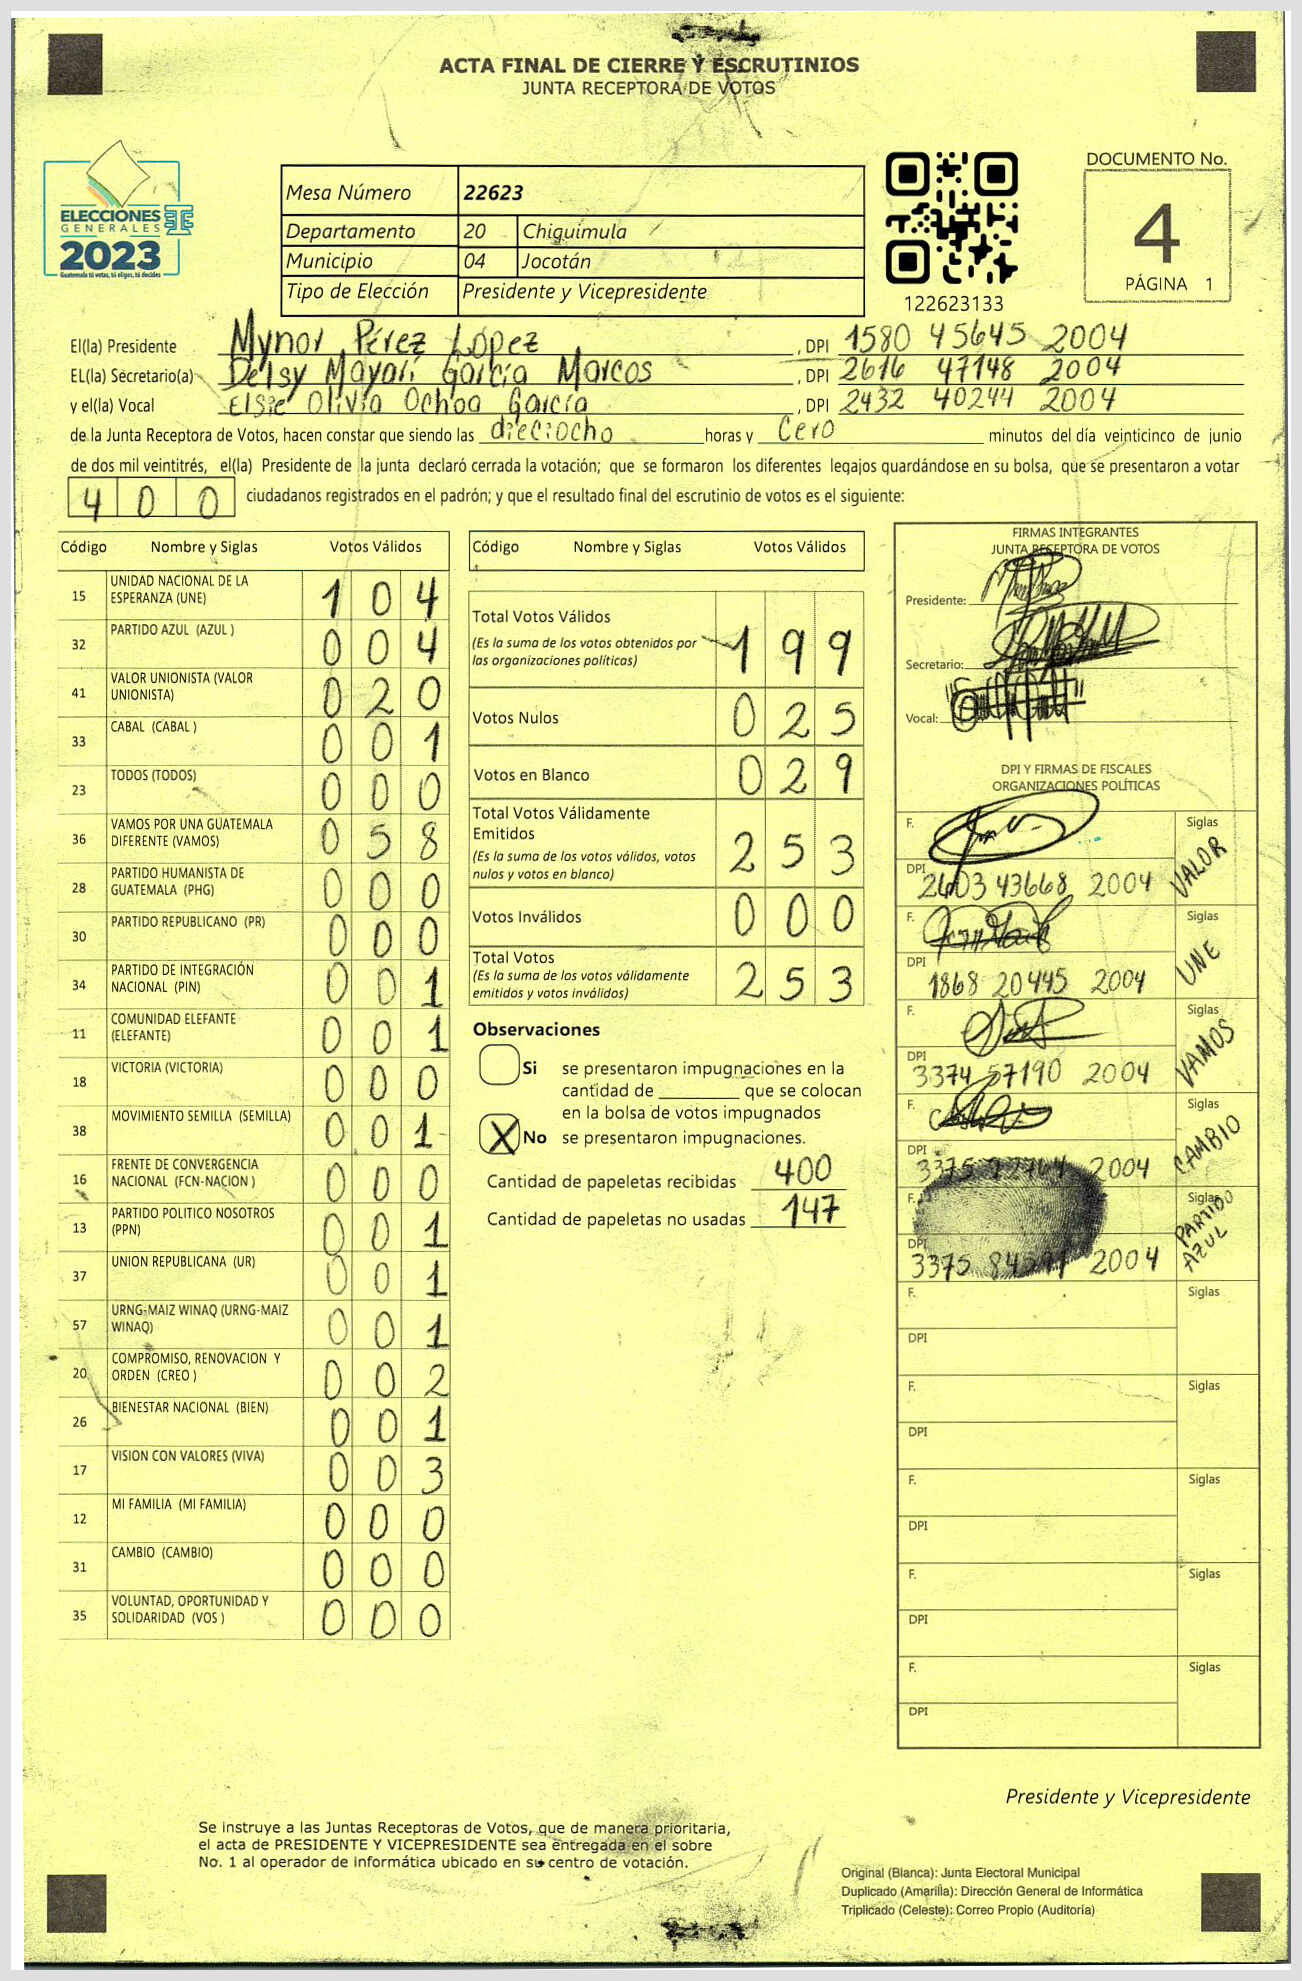 ACTA FINAL DE CIERRE Y ESCRUTINIOS
JUNTA RECEPTORA DE VOTOS
ELECCIONES
GENERALES
2023
Guatemala tú votas, tú eliges, tú decides
Mesa Número 22623
Departamento 20 Chiquimula
Municipio 04 Jocotán
Tipo de Elección Presidente y Vicepresidente
122623133
DOCUMENTO No.
4
PÁGINA 1
El(la) Presidente Mynor Pérez López, DPI 1580 45645 2004
EL(la) Secretario(a) Delsy Mayarí García Marcos, DPI 2616 47148 2004
y el(la) Vocal Elsie Olivia Ochoa García, DPI 2432 40244 2004
de la Junta Receptora de Votos, hacen constar que siendo las dieciocho horas y Cero minutos del día veinticinco de junio
de dos mil veintitrés, el(la) Presidente de la junta declaró cerrada la votación; que se formaron los diferentes legajos guardándose en su bolsa, que se presentaron a votar
400 ciudadanos registrados en el padrón; y que el resultado final del escrutinio de votos es el siguiente:
Código Nombre y Siglas Votos Válidos
15 UNIDAD NACIONAL DE LA ESPERANZA (UNE) 104
32 PARTIDO AZUL (AZUL ) 004
41 VALOR UNIONISTA (VALOR UNIONISTA) 020
33 CABAL (CABAL ) 001
23 TODOS (TODOS) 000
36 VAMOS POR UNA GUATEMALA DIFERENTE (VAMOS) 058
28 PARTIDO HUMANISTA DE GUATEMALA (PHG) 000
30 PARTIDO REPUBLICANO (PR) 000
34 PARTIDO DE INTEGRACIÓN NACIONAL (PIN) 001
11 COMUNIDAD ELEFANTE (ELEFANTE) 001
18 VICTORIA (VICTORIA) 000
38 MOVIMIENTO SEMILLA (SEMILLA) 001
16 FRENTE DE CONVERGENCIA NACIONAL (FCN-NACION ) 000
13 PARTIDO POLITICO NOSOTROS (PPN) 001
37 UNION REPUBLICANA (UR) 001
57 URNG-MAIZ WINAQ (URNG-MAIZ WINAQ) 001
20 COMPROMISO, RENOVACION Y ORDEN (CREO ) 002
26 BIENESTAR NACIONAL (BIEN) 001
17 VISION CON VALORES (VIVA) 003
12 MI FAMILIA (MI FAMILIA) 000
31 CAMBIO (CAMBIO) 000
35 VOLUNTAD, OPORTUNIDAD Y SOLIDARIDAD (VOS ) 000
Código Nombre y Siglas Votos Válidos
Total Votos Válidos 199
(Es la suma de los votos obtenidos por
las organizaciones políticas)
Votos Nulos 025
Votos en Blanco 029
Total Votos Válidamente
Emitidos 253
(Es la suma de los votos válidos, votos
nulos y votos en blanco)
Votos Inválidos 000
Total Votos 253
(Es la suma de los votos válidamente
emitidos y votos inválidos)
Observaciones
Si se presentaron impugnaciones en la
cantidad de ________ que se colocan
en la bolsa de votos impugnados
X No se presentaron impugnaciones.
Cantidad de papeletas recibidas 400
Cantidad de papeletas no usadas 147
FIRMAS INTEGRANTES
JUNTA RECEPTORA DE VOTOS
Presidente:
Secretario:
Vocal:
DPI Y FIRMAS DE FISCALES
ORGANIZACIONES POLÍTICAS
F. Siglas VALOR
DPI 2603 43668 2004
F. Siglas UNE
DPI 1868 20445 2004
F. Siglas VAMOS
DPI 3374 57190 2004
F. Siglas CAMBIO
DPI 3375 2004
F. Siglas PARTIDO AZUL
DPI 3375 2004
F. Siglas
DPI
F. Siglas
DPI
F. Siglas
DPI
F. Siglas
DPI
F. Siglas
DPI
Presidente y Vicepresidente
Se instruye a las Juntas Receptoras de Votos, que de manera prioritaria,
el acta de PRESIDENTE Y VICEPRESIDENTE sea entregada en el sobre
No. 1 al operador de informática ubicado en su centro de votación.
Original (Blanca): Junta Electoral Municipal
Duplicado (Amarilla): Dirección General de Informática
Triplicado (Celeste): Correo Propio (Auditoría)